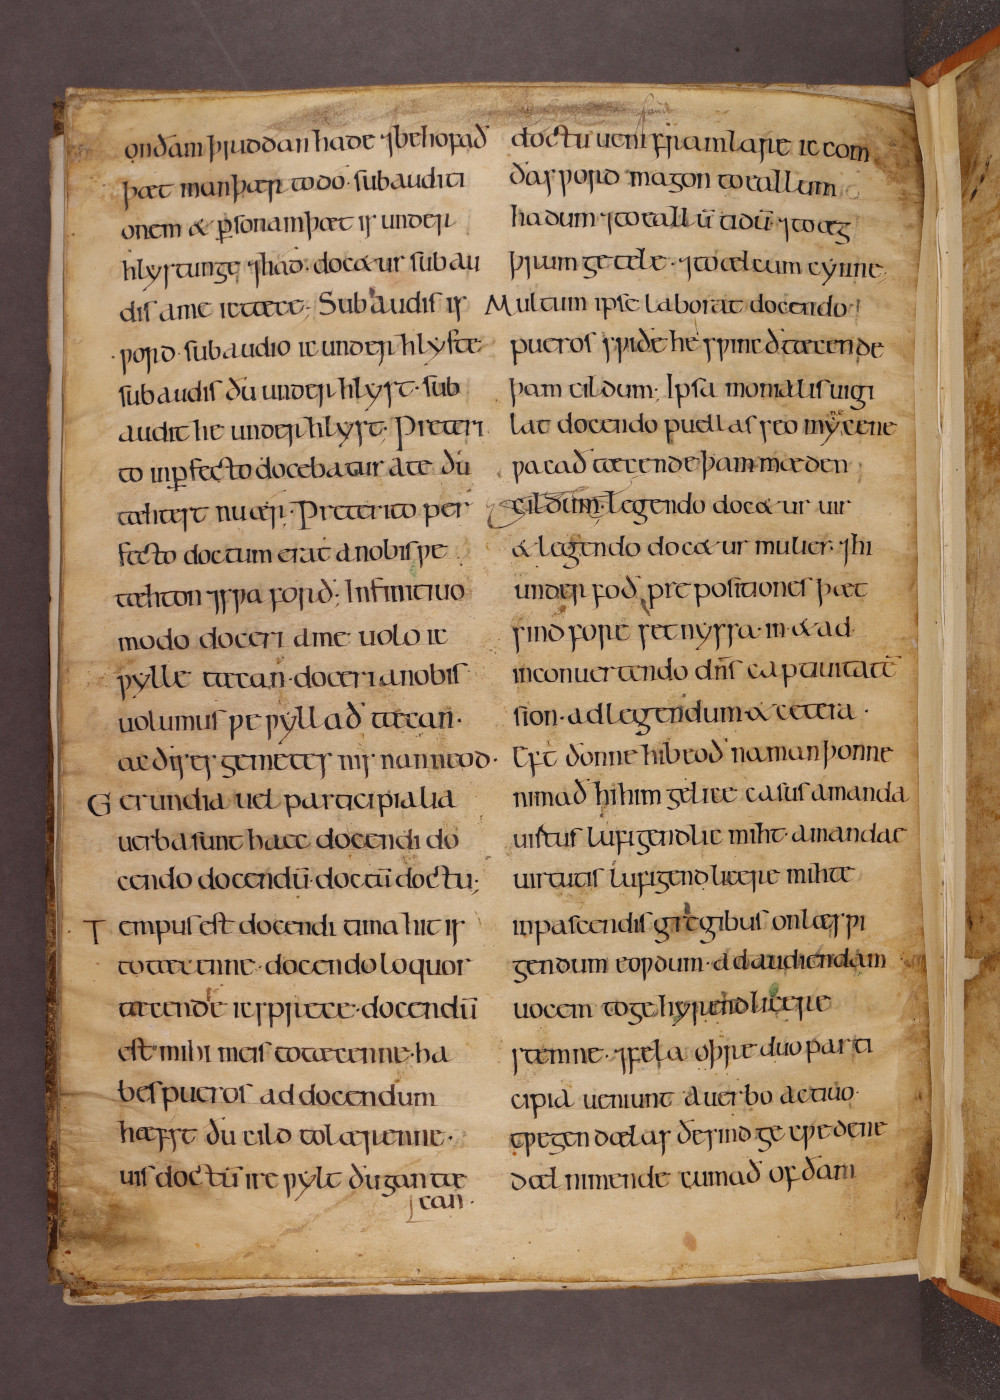 onðam þriddan hade ⁊behofað
þæt man þær todo· subauditi
onem & p̲sonam þæt is under
hlystunge ⁊had· doc&ur subau
dis ame ictæce; Subaudis is
word· subaudio ic underhlyste·
subaudis ðu underhlyst· sub
audit he underhlyst· Preteri
to inp̲fecto docebatur ate ðu
tæhtest nuær· Preterito per
fecto doctum erat anobis pe
tæhton ⁊swa forð; Infinitiuo
modo doceri ame uolo ic
wylle tæcan· doceri anobis
uolumus we wyllað tæcan·
ac dises gemetes nis nan neod·
Gerundia uel participialia
uerba sunt haec docendi do
cendo docendū· doctū doctu;
Tempus est docendi tima hit is
totæcenne· docendo loquor
tæcende ic sprece· docendū
est mihi meis totæcenne· ha
bes pueros ad docendum
hæfst ðu cild tolærenne·
uis doctū ire wylt ðu gan tæ
can·
doctu ueni fram lare ic com
ðas word magon toeallum
hadum ⁊toeallū tidū ⁊toæg
þrum getele· ⁊toælcum cynne
Multum ipse laborat docendo
pueros swiðe he swincð tæcende
þam cildum; Ipsa monialis uigi
lat docendo puellas seo mynecene
wacað tæcende þam mæden
cildum· legendo doc&ur uir
& legendo doc&ur mulier· ⁊hi
underfoð prepositiones þæt
sind fore setnyssa· in & ad
inconuertendo dn̄s captiuitatē
sion· ad legendum & cetera·
Eft ðonne hi beoð naman þonne
nimað hi him gelice casus amanda
uirtus lufigendlic miht· amandae
uirtutis lufigendlicere mihte
inpascendis gregibus onlæswi
gendum eowdum· ad audiendam
uocem togehyrendlicere
stemne· ⁊fela oþre duo parti
cipia ueniunt auerbo actiuo·
twegen dælas ðe sind gecwedene
dæl nimende cumað of ðam